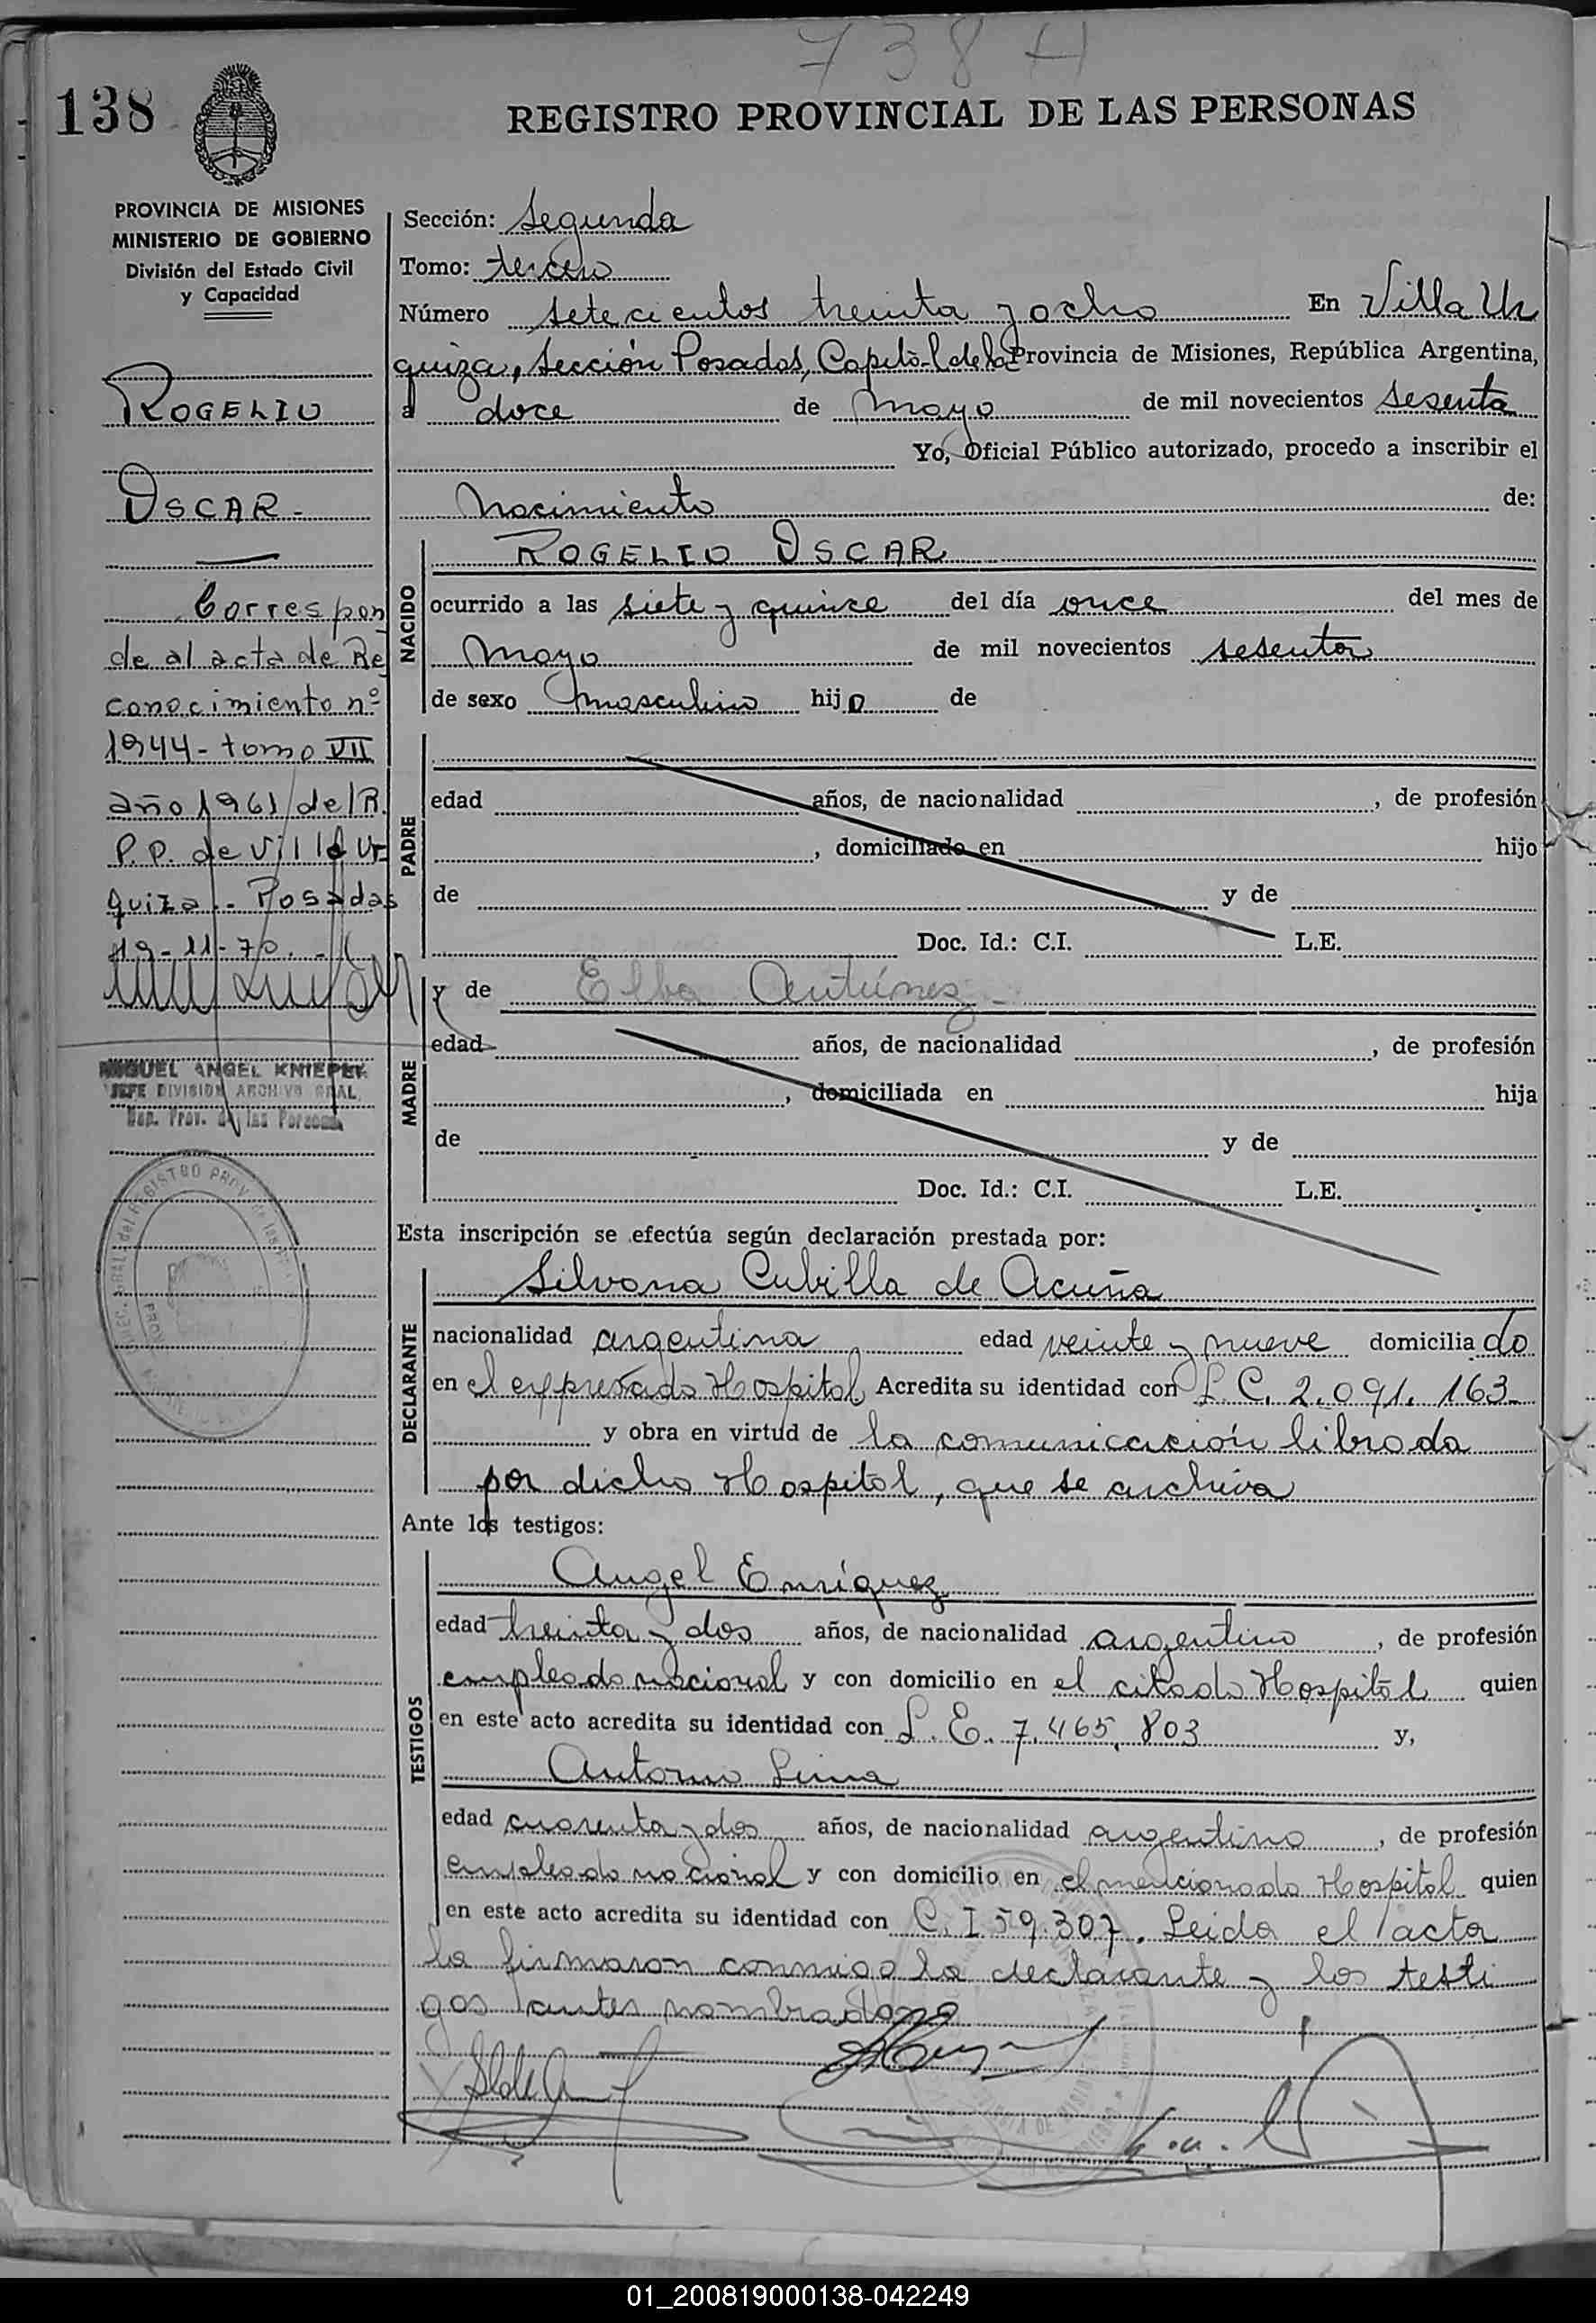 738 H
138
REGISTRO PROVINCIAL DE LAS PERSONAS
PROVINCIA DE MISIONES
MINISTERIO DE GOBIERNO
División del Estado Civil
y Capacidad
ROGELIO
OSCAR.
Correspon
de al acta de Re
conocimiento nº
1944 - tomo VII
año 1961 del R.
P.P. de Villa Ur
quiza - Posadas
19-11-70.
MIGUEL ANGEL KNIEPER
JEFE DIVISION ARCHIVO GRAL.
Rep. Prov. de las Personas
Sección: Segunda
Tomo: tercero
Número setecientos treinta y ocho En Villa Ur
quiza, Sección Posadas, Capital de la Provincia de Misiones, República Argentina,
a doce de mayo de mil novecientos sesenta
Yo, Oficial Público autorizado, procedo a inscribir el
Nacimiento de:
NACIDO
ROGELIO OSCAR
ocurrido a las siete y quince del día once del mes de
mayo de mil novecientos sesenta
de sexo masculino hijo de
PADRE
edad años, de nacionalidad , de profesión
, domiciliado en hijo
de y de
Doc. Id.: C.I. L.E.
MADRE
y de Elba Antúnez -
edad años, de nacionalidad , de profesión
, domiciliada en hija
de y de
Doc. Id.: C.I. L.E.
Esta inscripción se efectúa según declaración prestada por:
DECLARANTE
Silvana Cubilla de Acuña
nacionalidad argentina edad veinte y nueve domiciliado
en el expresado Hospital Acredita su identidad con L.C. 2.091.163
y obra en virtud de la comunicación librada
por dicho Hospital, que se archiva
Ante los testigos:
TESTIGOS
Angel Enríquez
edad treinta y dos años, de nacionalidad argentino , de profesión
empleado nacional y con domicilio en el citado Hospital quien
en este acto acredita su identidad con L.E. 7.465.803 y,
Antonio Lima
edad cuarenta y dos años, de nacionalidad argentino , de profesión
empleado nacional y con domicilio en el mencionado Hospital quien
en este acto acredita su identidad con C.I 59.307. Leida el acta
la firmaron conmigo la declarante y los testi
gos antes nombrados
01_200819000138-042249